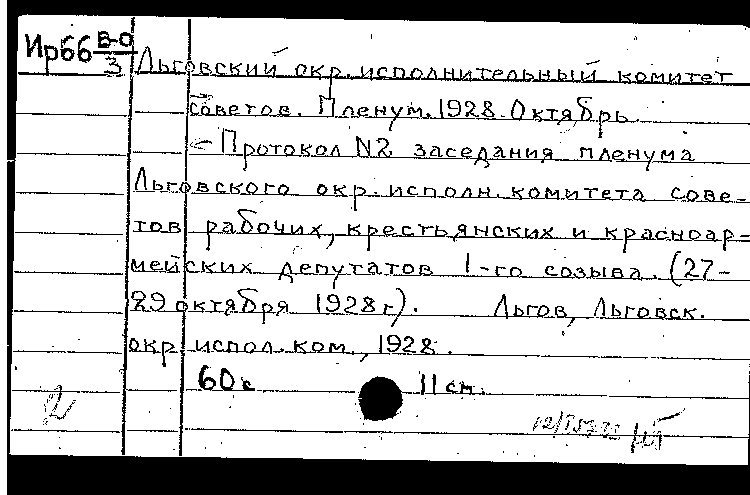 Ир66 В-0/3 Льговский окр. исполнительный комитет
советов. Пленум. 1928. Октябрь
Протокол N2 заседания пленума
Льговского окр. исполн. комитета сове-
тов рабочих, крестьянских и красноар-
мейских депутатов 1-го созыва. (27-
29 октября 1928 г). Льгов, Льговск.
окр. испол. ком., 1928.
60 с 11 см.
2